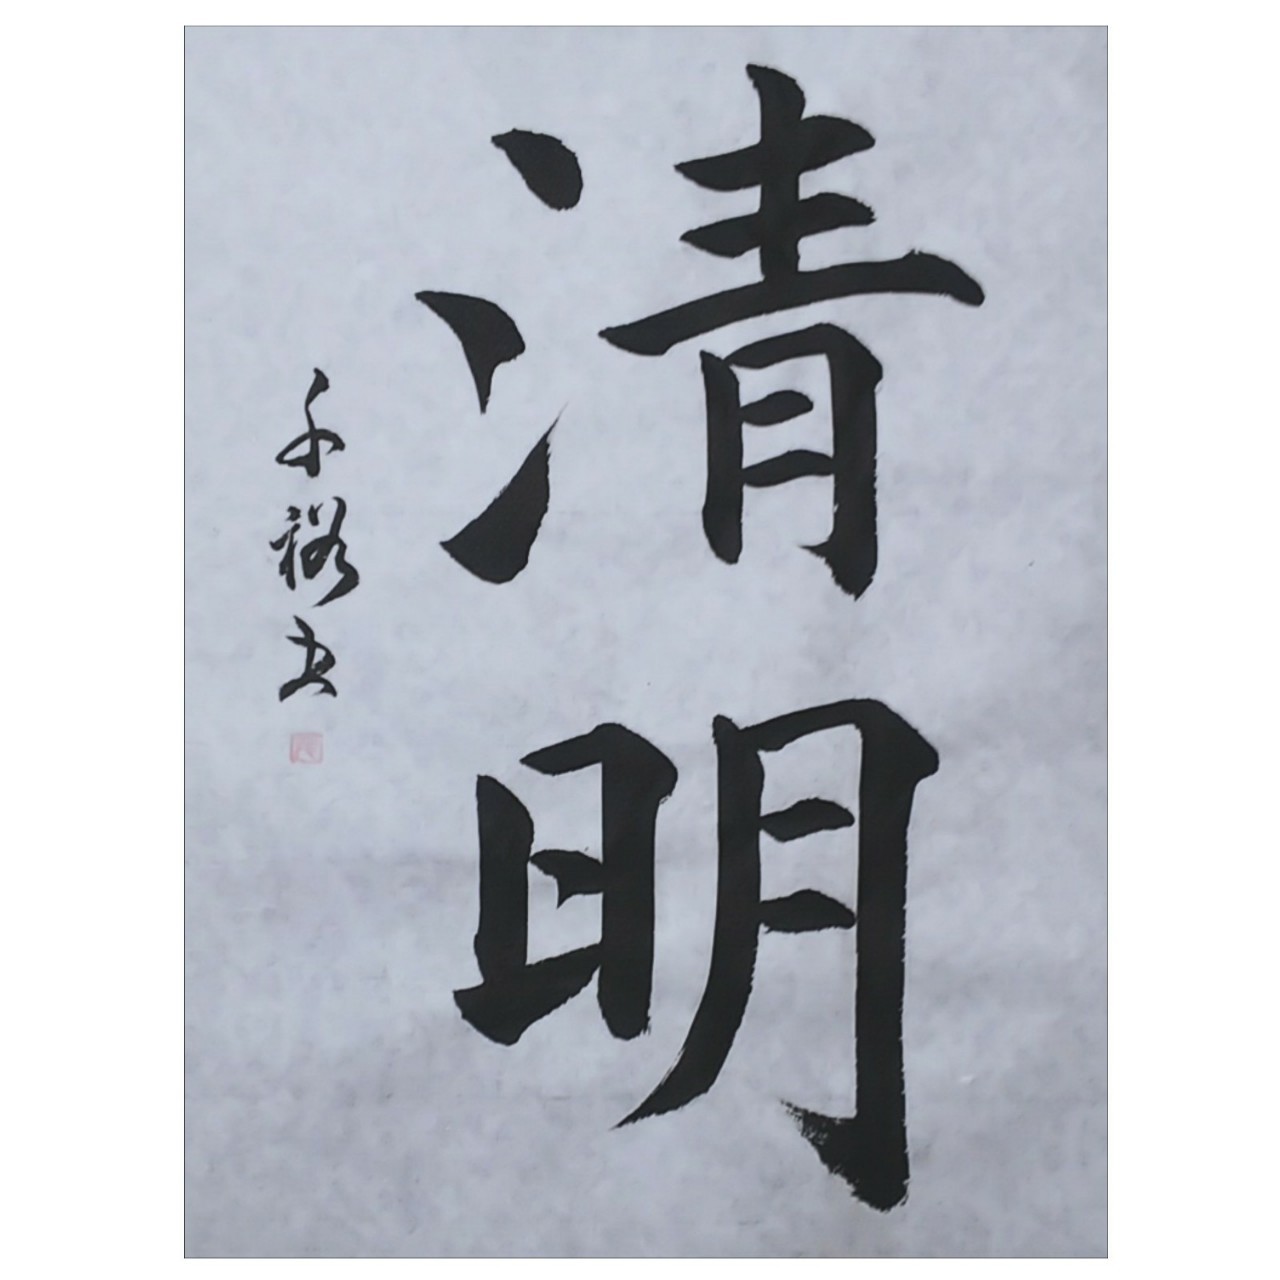 清明
千裕書